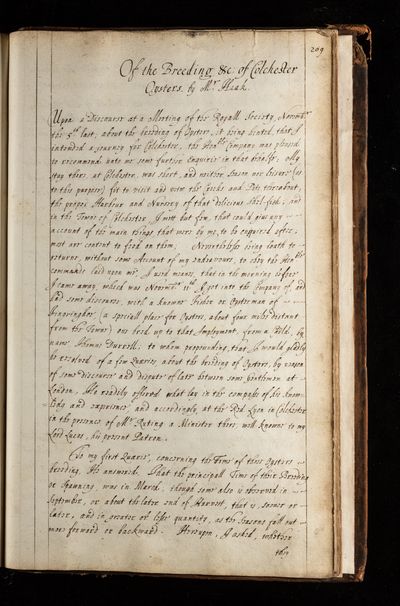 209
Of the Breeding &c: of Colchester
Oysters, by Mr. Haak.
Upon a Discourse at a Meeting of the Royall Society, Novembr
the 5th last, about the breeding of Oysters, it being hinted, that I
intended a journey for Colchester, the Honble Company was pleased
to recommend unto me some further Enquirie in that behalfe; My
stay there, at Colchester, was short, and neither Season nor leisure (as
to this purpose) fit to visit and view the Creeks and Pits thereabout,
the proper Harbour and Nursery of that delicious shel-fish; and
in the Towne of Colchester I mett but few, that could give any
account of the main things that were by me, to be enquired after,
most are content to feed on them. Neverthelesse being loath to
returne, without some Account of my endeavours, to obey the Honble
commands laid upon me, I used means, that in the morning before
I came away, which was Novembr 11th I gott into the Company of, and
had some discourse, with a knowne Fisher or Oysterman of
(a speciall place for Oysters, about four miles distant
from the Towne) one bred up to that Imployment, from a Child, by
name Thomas Burrell; to whom propounding, that I would gladly
be resolved of a few Quaeries about the breeding of Oysters, by reason
of some discourse and dispute of late between some Gentlemen at
London, He readily offered what lay in the compasse of his know-
ledg and experience, and accordingly, at the Red Lyon in Colchester
in the presence of Mr. Ruting a Minister there, well known to my
Lord Lucas, his present Patron.
To my first Quaerie, concerning the Time of their Oysters
breeding, He answered, That the principall Time of their Breeding
or Spawning was in March, though some also is observed in
September, or about the later end of Harvest, that is, sooner or
later, and in greater or lesse quantity, as the Seasons fall out
more forward or backward. Hereupon, I asked, whether
they